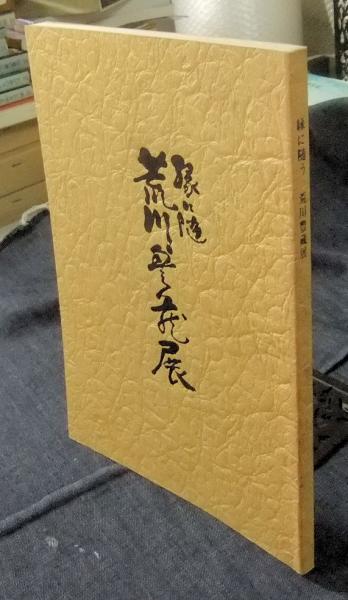 縁に随う
荒川豊蔵展
縁に随う 荒川豊蔵展